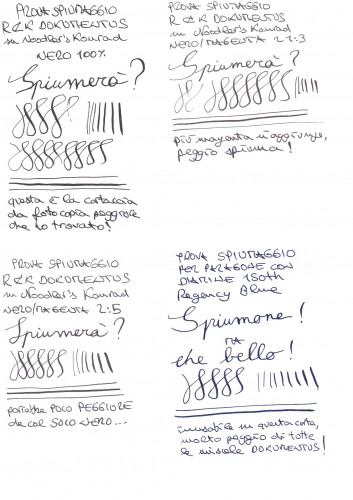 PROVA SPIUMAGGIO
R&K DOKUMENTUS
su Noodler's Konrad
NERO 100%
Spiumerà?
questa è la cartaccia
da fotocopia peggiore
che ho trovato!
PROVA SPIUMAGGIO
R&K DOKUMENTUS
su Noodler's Konrad
NERO/MAGENTA 21:3
Spiumerà?
più magenta si aggiunge,
peggio spiuma!
PROVA SPIUMAGGIO
R&K DOKUMENTUS
su Noodler's Konrad
NERO/MAGENTA 2:5
Spiumerà?
parrebbe POCO PEGGIORE
da col SOLO NERO...
PROVA SPIUMAGGIO
PER PARAGONE CON
DIAMINE 150th
Regency Blue
Spiumone!
MA
che bello!
inusabile su questa carta,
molto peggio di tutte
le miscele DOKUMENTUS!